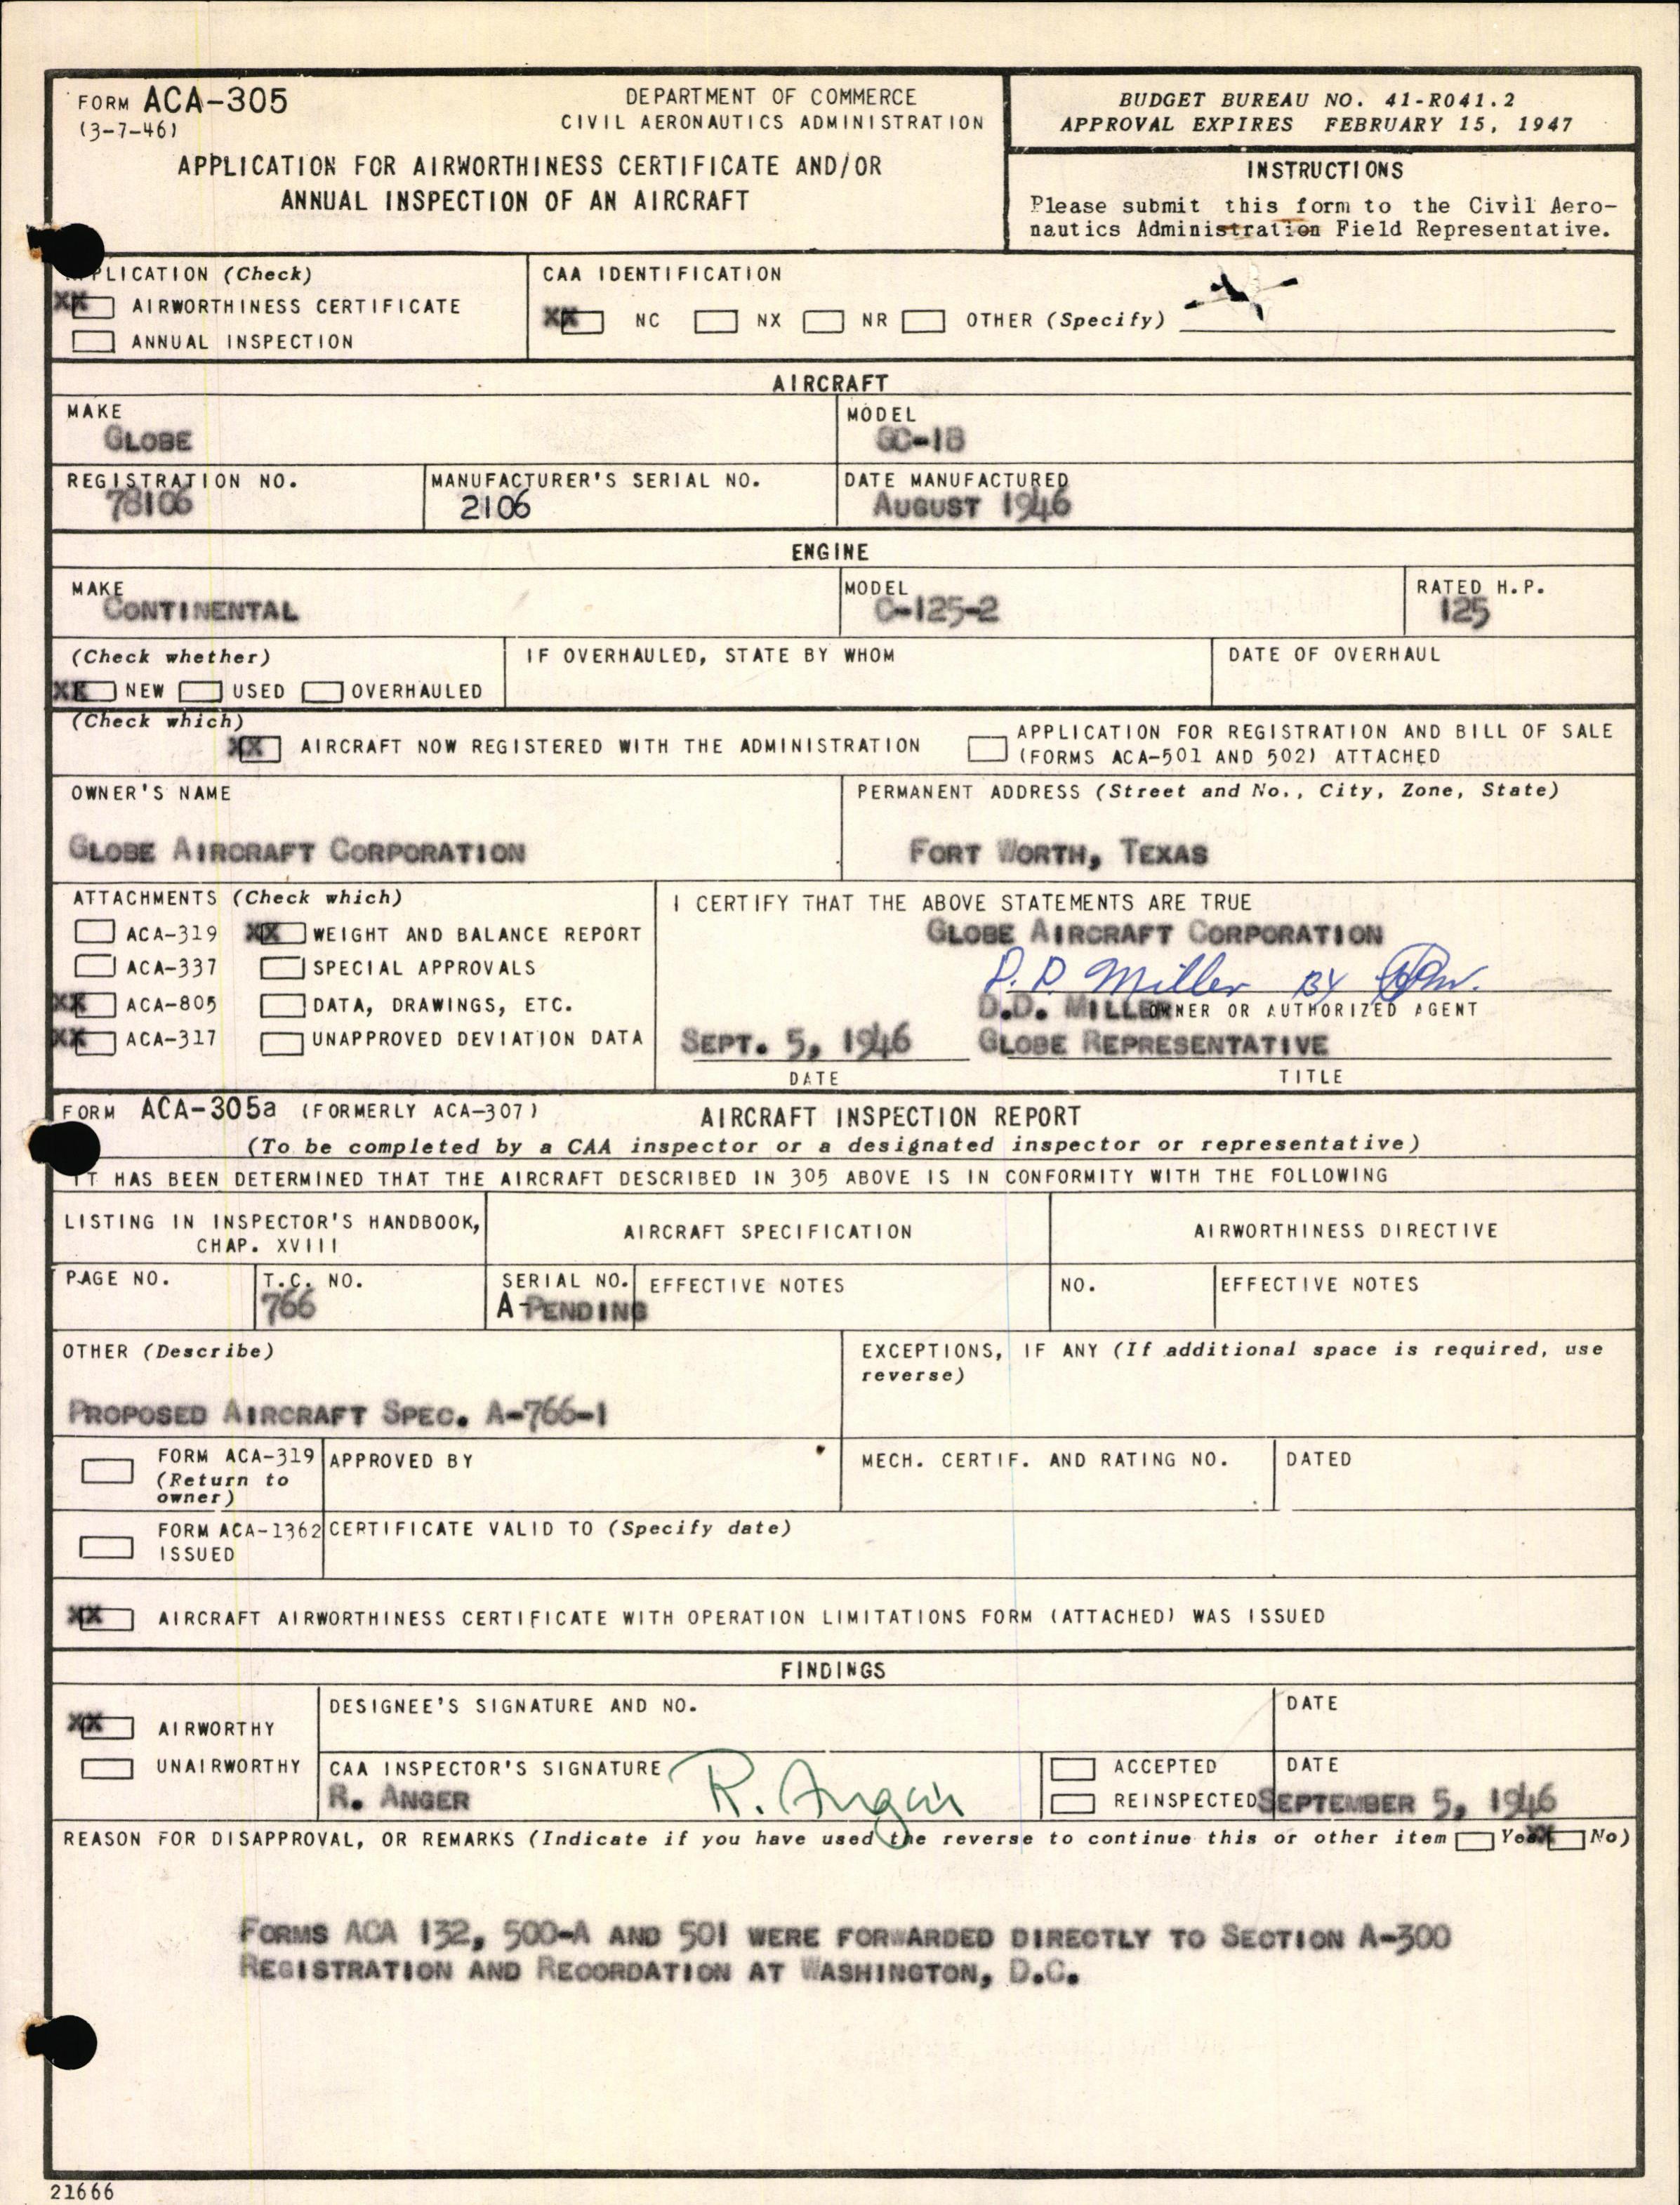 FORM ACA-305
(3-7-46)
DEPARTMENT OF COMMERCE
CIVIL AERONAUTICS ADMINISTRATION
APPLICATION FOR AIRWORTHINESS CERTIFICATE AND/OR
ANNUAL INSPECTION OF AN AIRCRAFT
BUDGET BUREAU NO. 41-R041.2
APPROVAL EXPIRES FEBRUARY 15, 1947
INSTRUCTIONS
Please submit this form to the Civil Aero-
nautics Administration Field Representative.
PLICATION (Check)
XX AIRWORTHINESS CERTIFICATE
ANNUAL INSPECTION
CAA IDENTIFICATION
XX NC NX NR OTHER (Specify)
AIRCRAFT
MAKE
GLOBE
MODEL
GC-1B
REGISTRATION NO.
78106
MANUFACTURER'S SERIAL NO.
2106
DATE MANUFACTURED
AUGUST 1946
ENGINE
MAKE
CONTINENTAL
MODEL
C-125-2
RATED H.P.
125
(Check whether)
XX NEW USED OVERHAULED
IF OVERHAULED, STATE BY WHOM
DATE OF OVERHAUL
(Check which)
XX AIRCRAFT NOW REGISTERED WITH THE ADMINISTRATION
APPLICATION FOR REGISTRATION AND BILL OF SALE
(FORMS ACA-501 AND 502) ATTACHED
OWNER'S NAME
GLOBE AIRCRAFT CORPORATION
PERMANENT ADDRESS (Street and No., City, Zone, State)
FORT WORTH, TEXAS
ATTACHMENTS (Check which)
ACA-319 XX WEIGHT AND BALANCE REPORT
ACA-337 SPECIAL APPROVALS
XX ACA-805 DATA, DRAWINGS, ETC.
XX ACA-317 UNAPPROVED DEVIATION DATA
I CERTIFY THAT THE ABOVE STATEMENTS ARE TRUE
GLOBE AIRCRAFT CORPORATION
D. D. Miller BY
D.D. MILLER OWNER OR AUTHORIZED AGENT
SEPT. 5, 1946 GLOBE REPRESENTATIVE
DATE TITLE
FORM ACA-305a (FORMERLY ACA-307)
AIRCRAFT INSPECTION REPORT
(To be completed by a CAA inspector or a designated inspector or representative)
IT HAS BEEN DETERMINED THAT THE AIRCRAFT DESCRIBED IN 305 ABOVE IS IN CONFORMITY WITH THE FOLLOWING
LISTING IN INSPECTOR'S HANDBOOK,
CHAP. XVIII
AIRCRAFT SPECIFICATION
AIRWORTHINESS DIRECTIVE
PAGE NO.
T.C. NO.
766
SERIAL NO.
A-PENDING
EFFECTIVE NOTES
NO.
EFFECTIVE NOTES
OTHER (Describe)
PROPOSED AIRCRAFT SPEC. A-766-1
EXCEPTIONS, IF ANY (If additional space is required, use
reverse)
FORM ACA-319
(Return to
owner)
APPROVED BY
MECH. CERTIF. AND RATING NO.
DATED
FORM ACA-1362
ISSUED
CERTIFICATE VALID TO (Specify date)
XX AIRCRAFT AIRWORTHINESS CERTIFICATE WITH OPERATION LIMITATIONS FORM (ATTACHED) WAS ISSUED
FINDINGS
XX AIRWORTHY
UNAIRWORTHY
DESIGNEE'S SIGNATURE AND NO.
DATE
CAA INSPECTOR'S SIGNATURE
R. ANGER
R. Anger
ACCEPTED
REINSPECTED
DATE
SEPTEMBER 5, 1946
REASON FOR DISAPPROVAL, OR REMARKS (Indicate if you have used the reverse to continue this or other item Yes XX No)
FORMS ACA 132, 500-A AND 501 WERE FORWARDED DIRECTLY TO SECTION A-300
REGISTRATION AND RECORDATION AT WASHINGTON, D.C.
21666